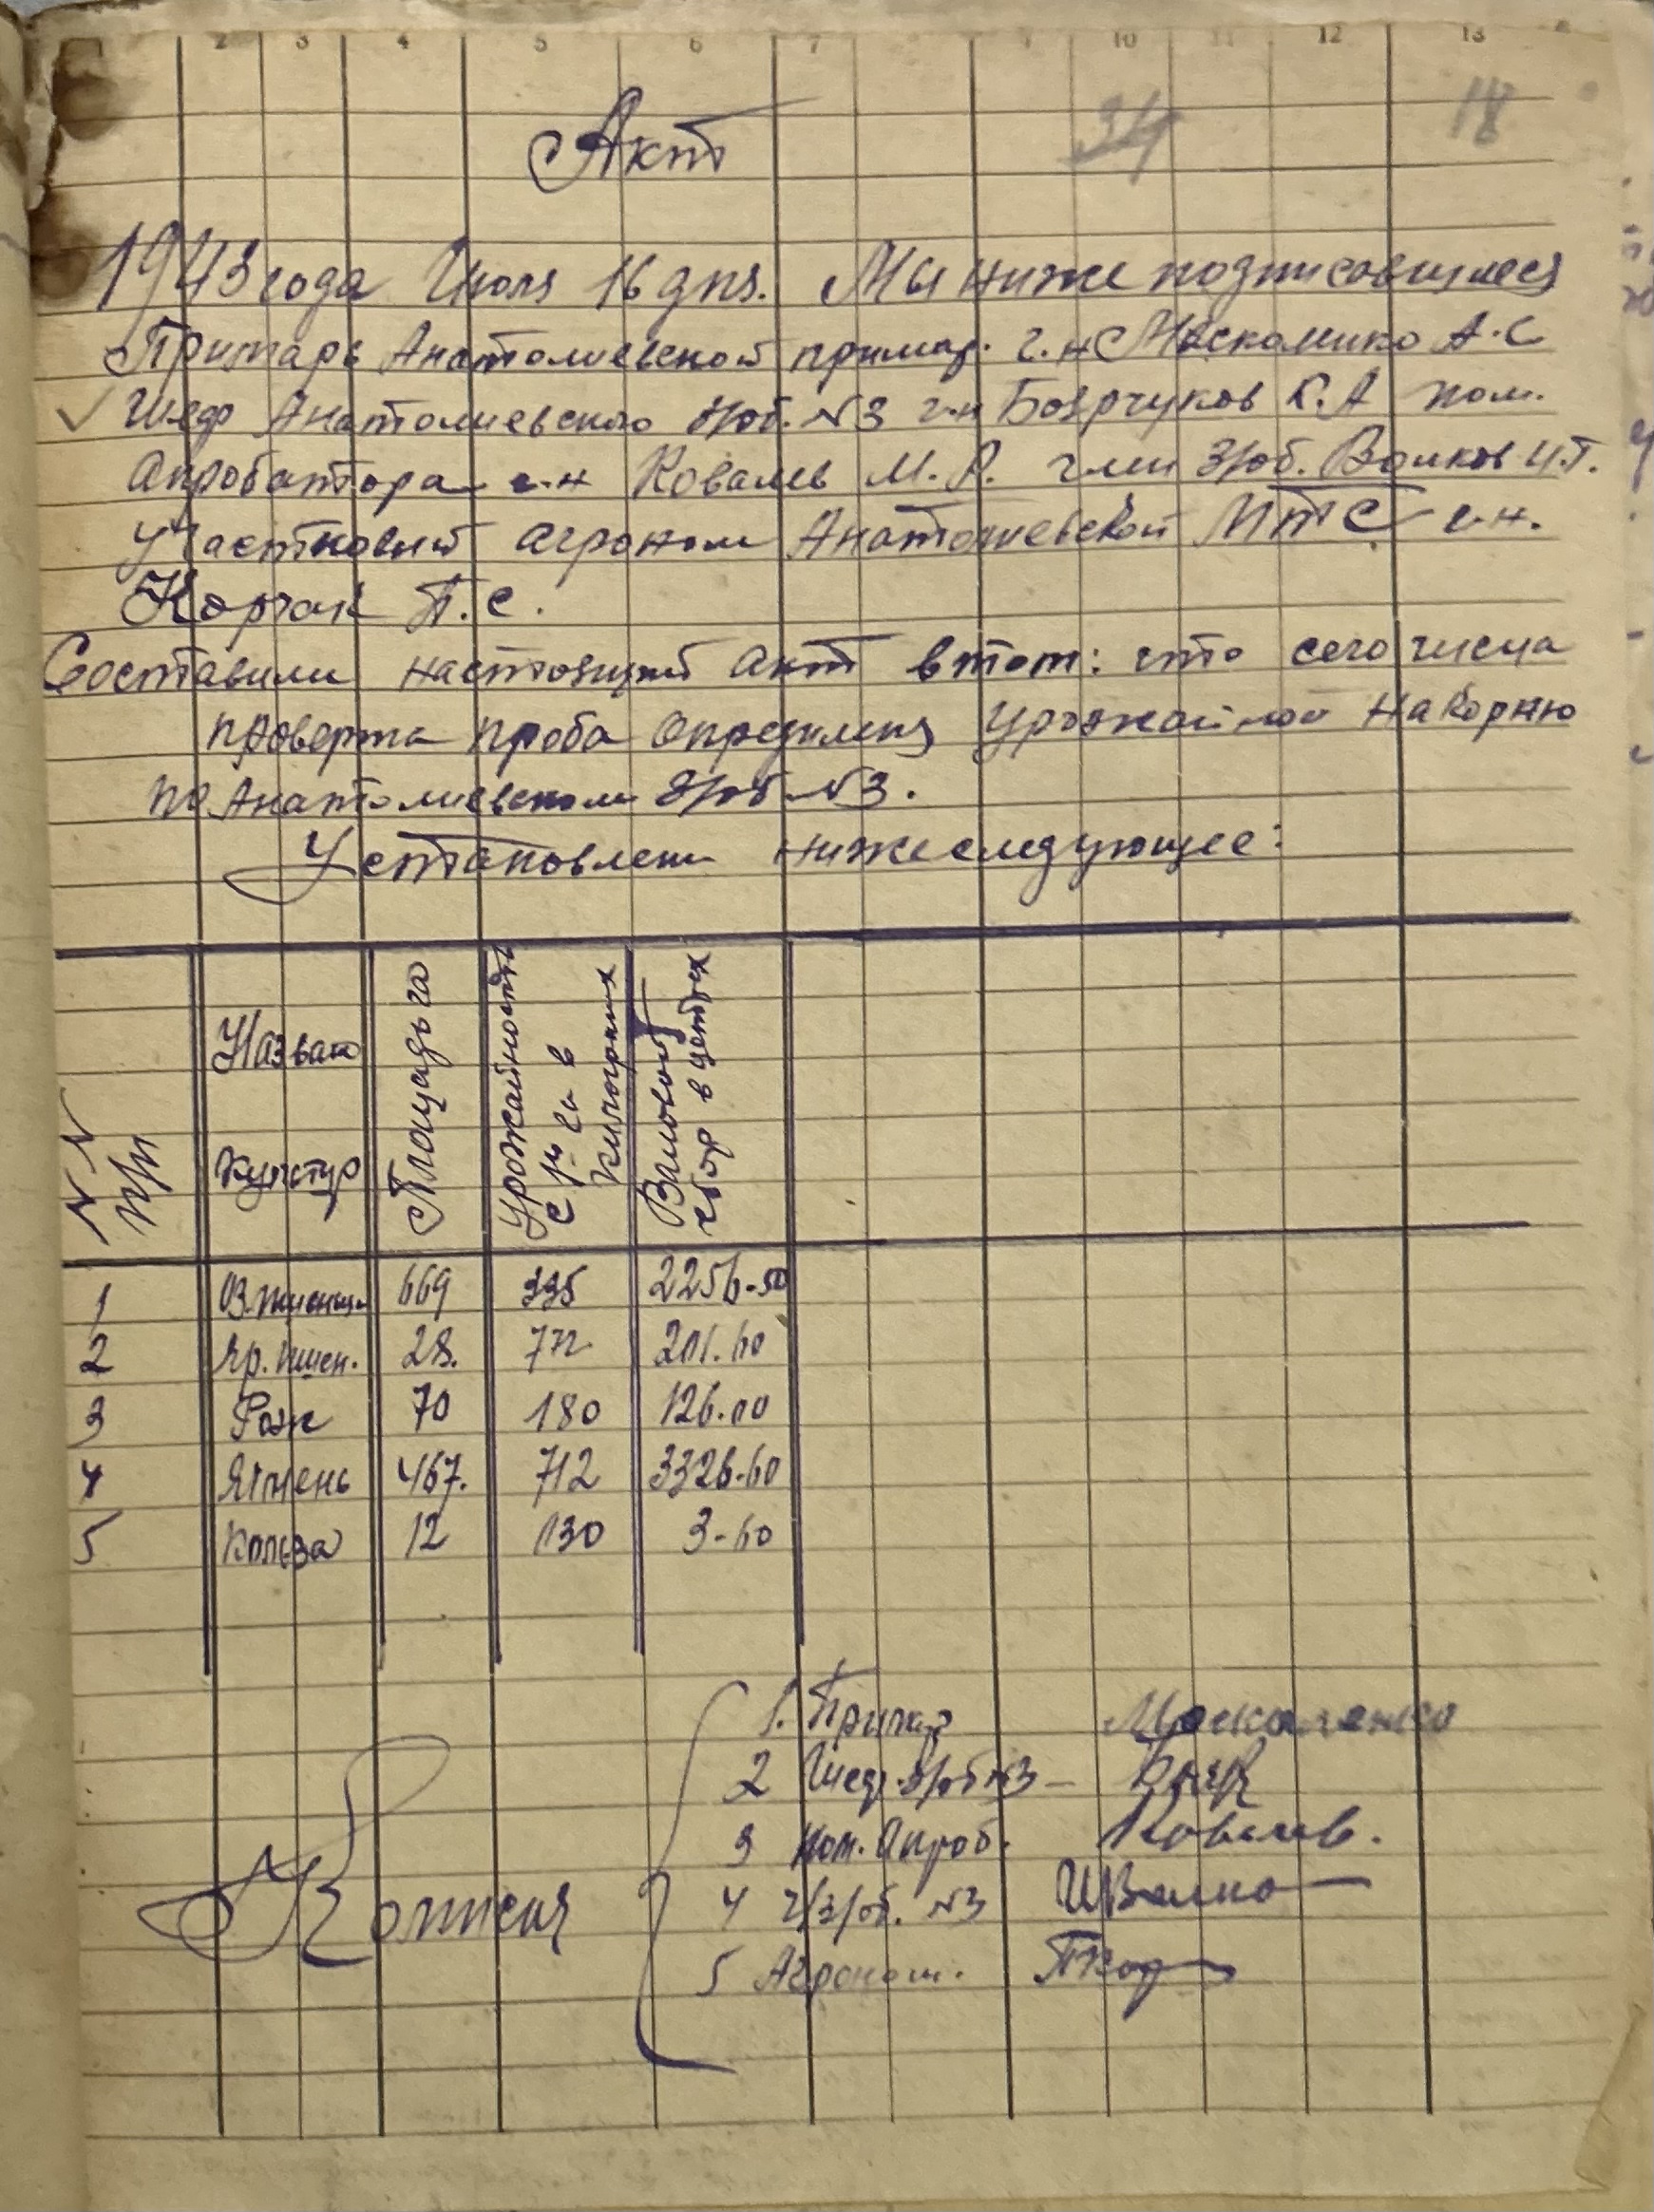 2 3 4 5 6 7 9 10 11 12 13
34 18
Акт
1943 года Июля 16 дня. Мы ниже подписавшиеся
Примарь Анатолиевской примар. г.н Москаленко А.С
Шеф Анатолиевского з/об. №3 г-н Боярчуков К.А пом.
Апробаттора г-н Ковалев М.Р. член з/об. Волков И.Т.
Участковый агроном Анатолиевской МТС г.н.
Корчак П.С.
Составили настоящий акт в том: что сего числа
проверка проба определения урожайной на корню
по Анатолиевском з/об №3.
Установлен нижеследующее:
N N п/п
Назван культур
Площадь га
Урожайность с 1 га в килограммах
Валовой сбор в цент-ах
1 Оз. пшеница 669 335 2256-50
2 Яр. пшен. 28. 72 201.60
3 Рож 70 180 126.00
4 Ячмень 467. 712 3326-60
5 Кольза 12 130 3-60
1. Примар Москаленко
2 Шеф з/об №3 –
3 пом. Апроб. Ковалев.
Комисия
4 ч/з/об. №3 ИВолко
5 Агроном. ПКор